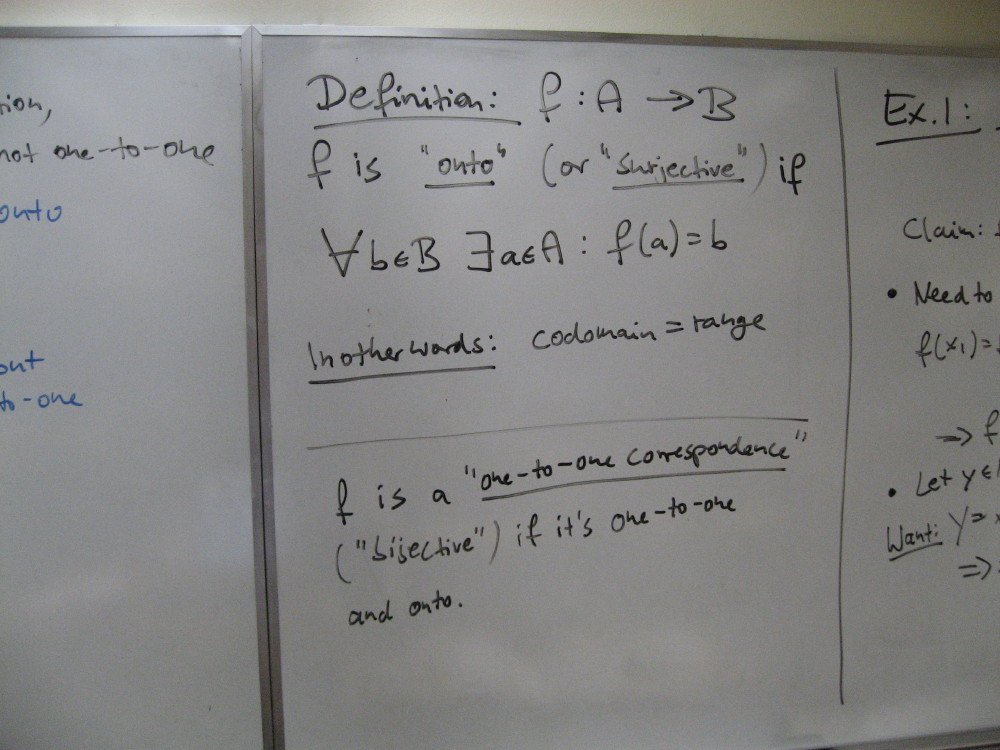 tion,
not one-to-one
onto
out
to-one
Definition: f : A → B
f is "onto" (or "surjective") if
∀b∈B ∃a∈A : f(a) = b
In other words: codomain = range
f is a "one-to-one correspondence"
("bijective") if it's one-to-one
and onto.
Ex.1:
Claim:
• Need to
f(x₁) =
⇒ f
• Let y ∈
Want: y =
⇒